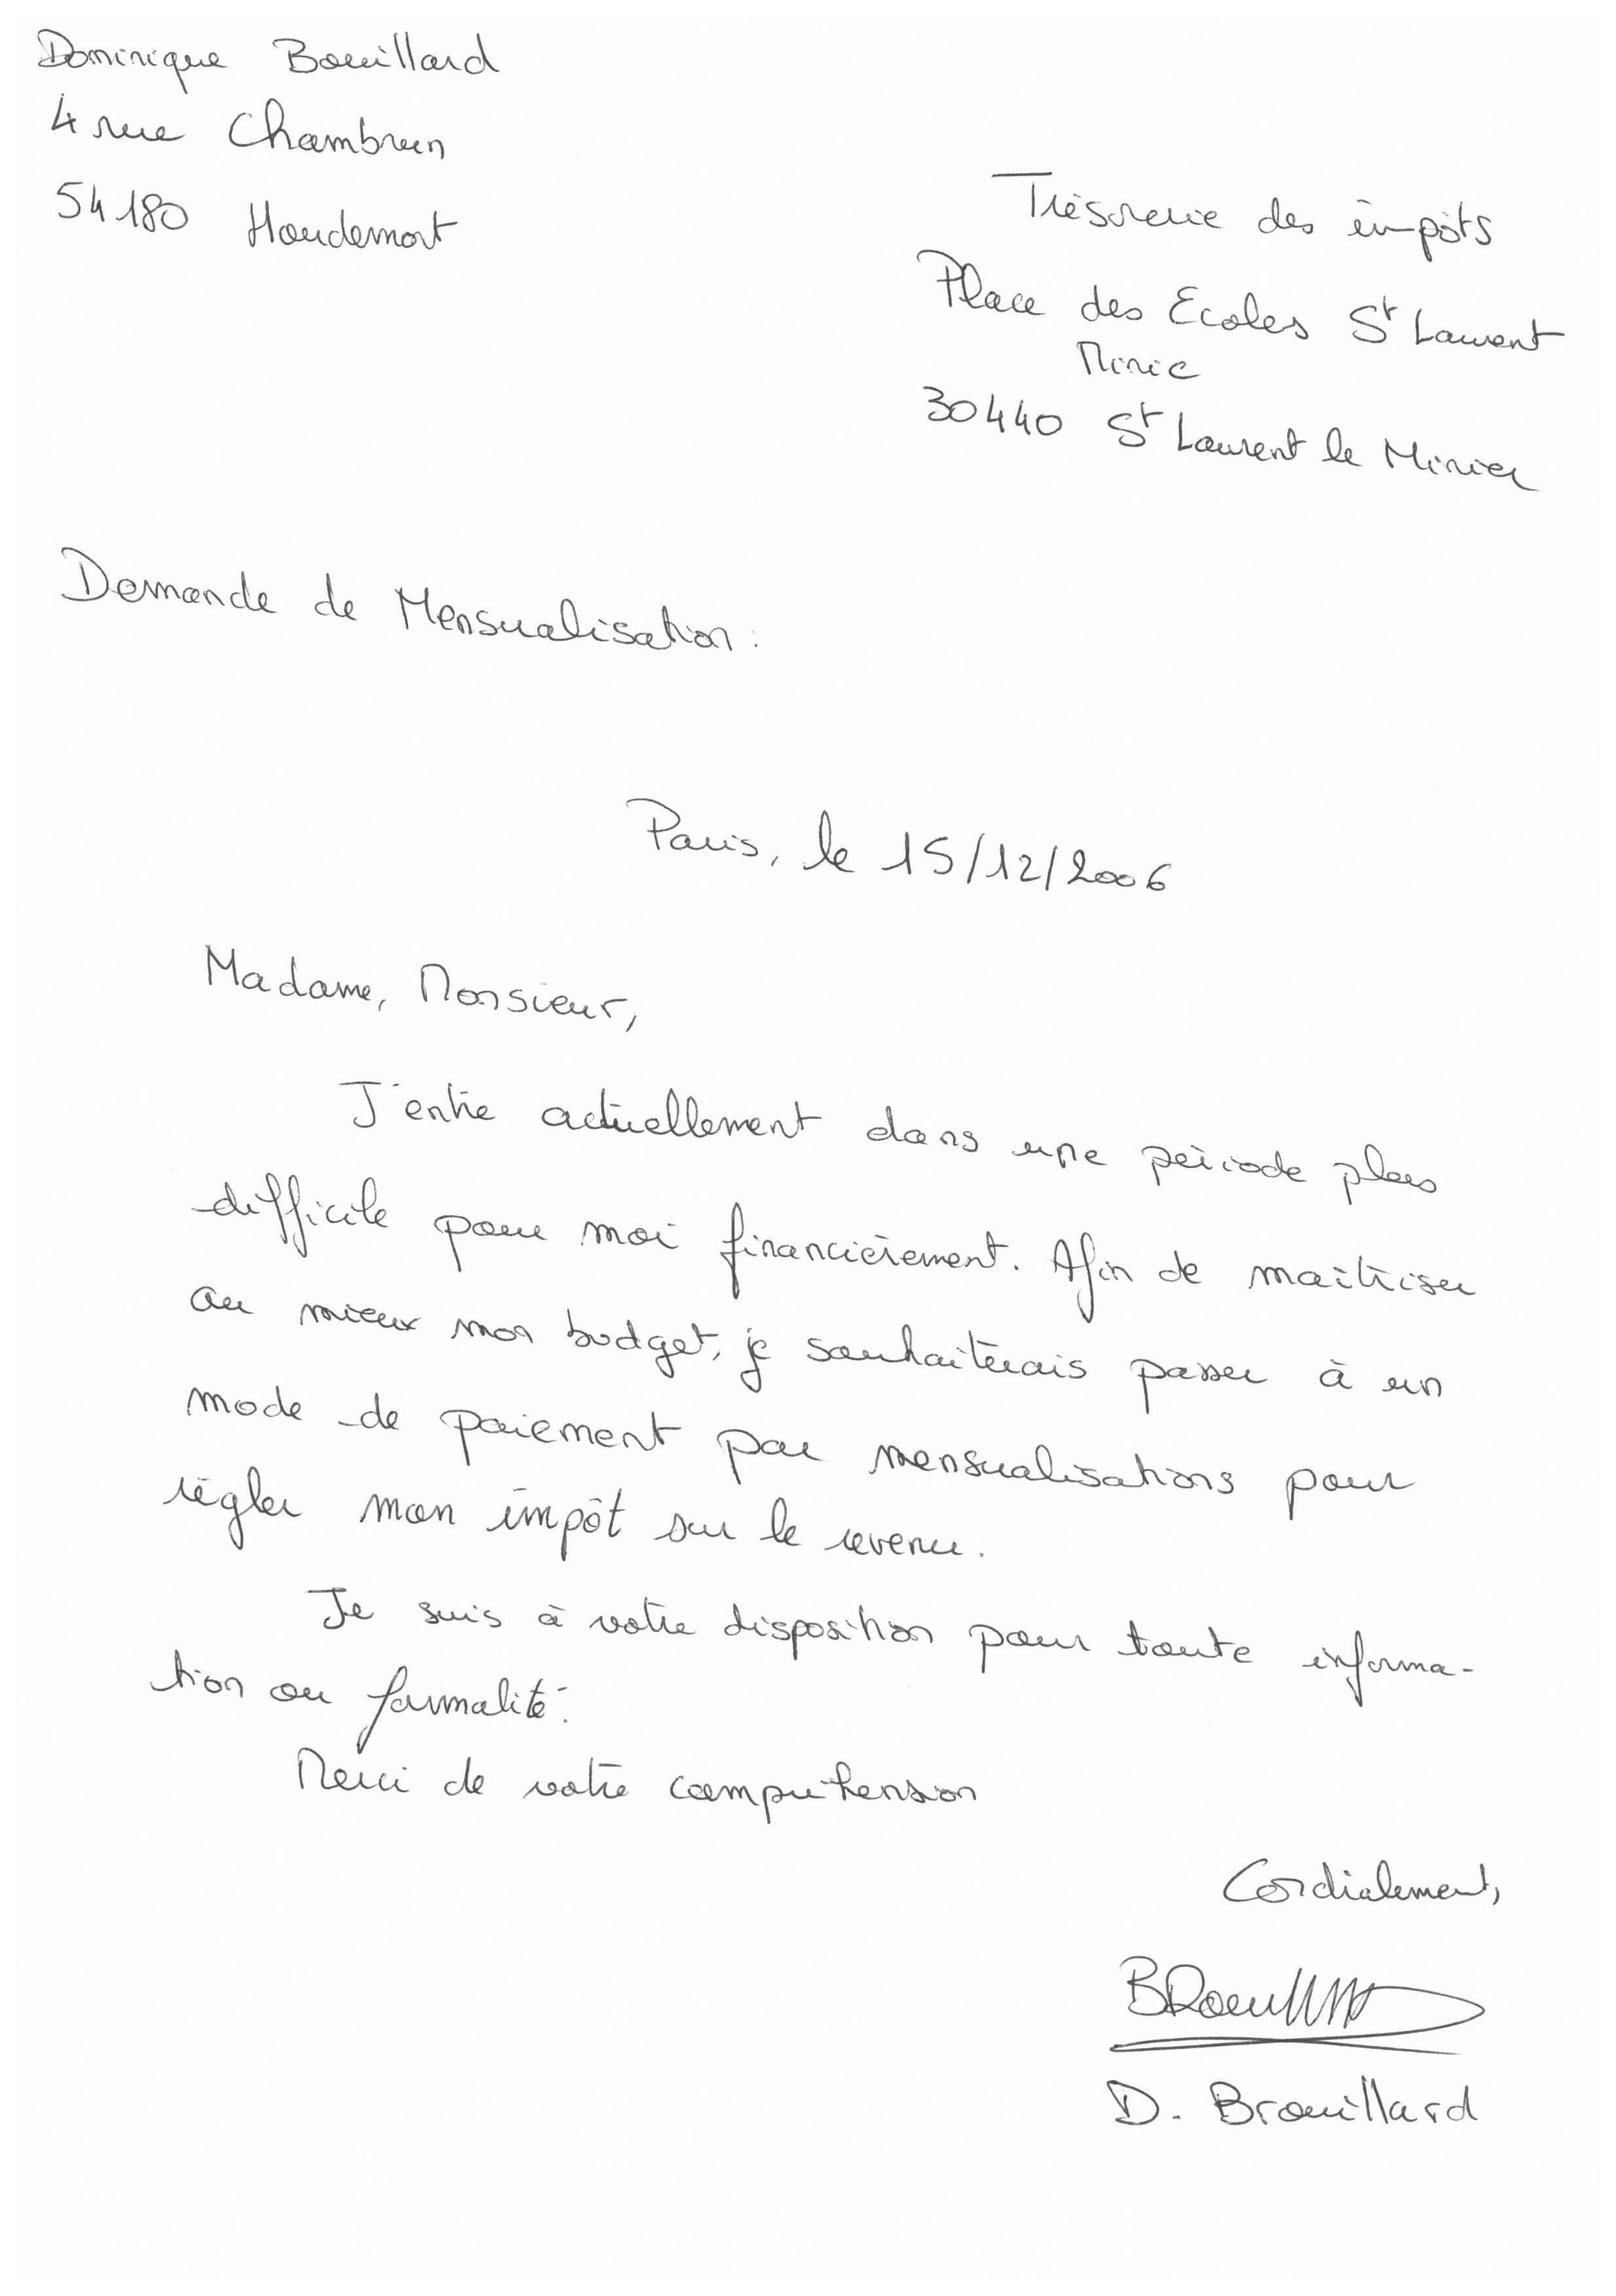 Dominique Bouillard
4 rue Chambrun
54180 Houdemont
Trésorerie des impôts
Place des Ecoles St Laurent
Minie
30440 St Laurent le Minier
Demande de Mensualisation:
Paris, le 15/12/2006
Madame, Monsieur,
J'entre actuellement dans une période plus
difficile pour moi financièrement. Afin de maîtriser
au mieux mon budget, je souhaiterais passer à un
mode de paiement par mensualisations pour
régler mon impôt sur le revenu.
Je suis à votre disposition pour toute informa-
tion ou formalité.
Merci de votre compréhension
Cordialement,
D. Brouillard